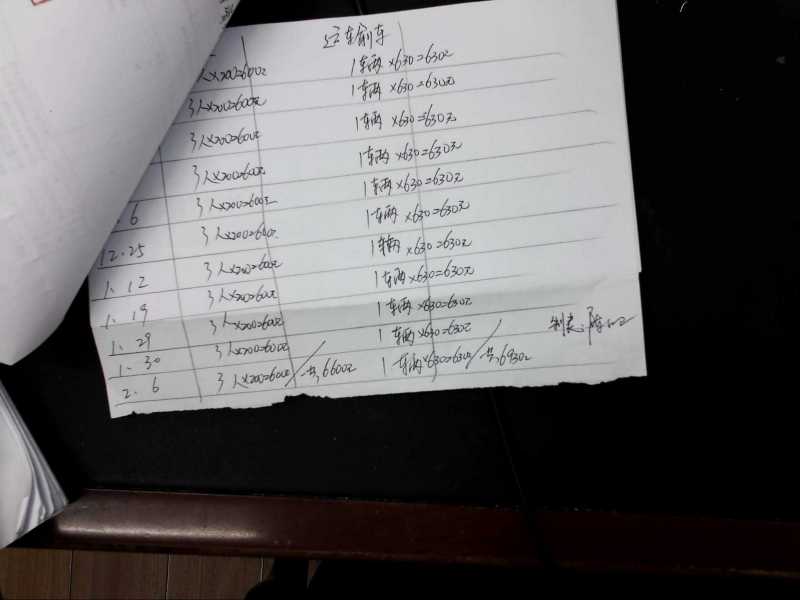 运输车
3人×200=600元 1车两×630=630元
3人×200=600元 1车两×630=630元
3人×200=600元 1车两×630=630元
3人×200=600元 1车两×630=630元
6 3人×200=600元 1车两×630=630元
12.25 3人×200=600元 1车两×630=630元
1.12 3人×200=600元 1辆×630=630元
1.19 3人×200=600元 1车两×630=630元
1.29 3人×200=600元 1车两×630=630元
1.30 3人×200=600元 1车两×630=630元
2.6 3人×200=600元/共6600元 1车两×630=630元/共6930元
制表: